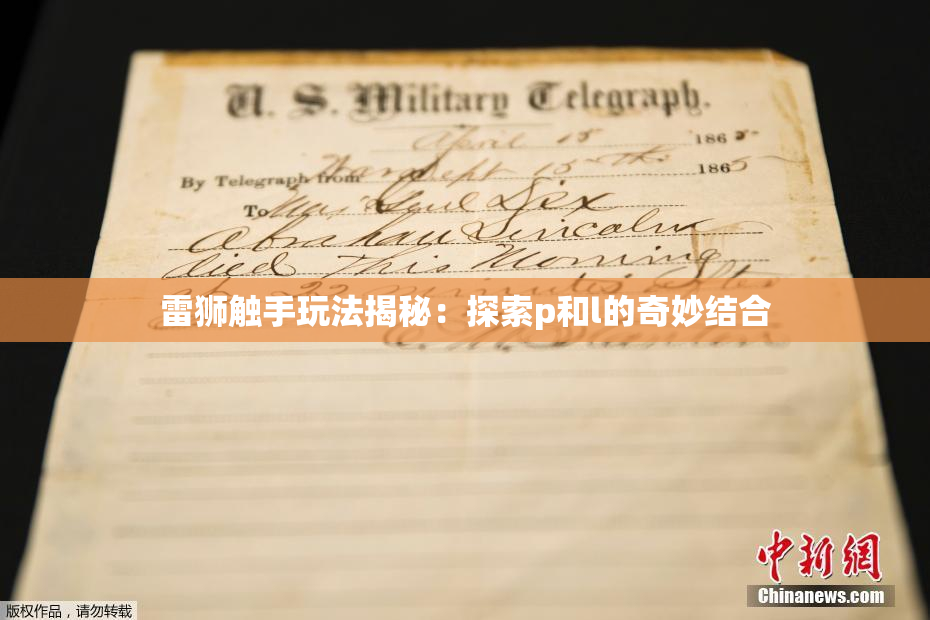 U. S. Military Telegraph.
April 15 1865
By Telegraph from War Dept 15th 1865
To Maj Genl Dix
Abraham Lincoln
died This Morning
at 22 minutes after
雷狮触手玩法揭秘：探索p和l的奇妙结合
E. M. Stanton
中新网
Chinanews.com
版权作品，请勿转载